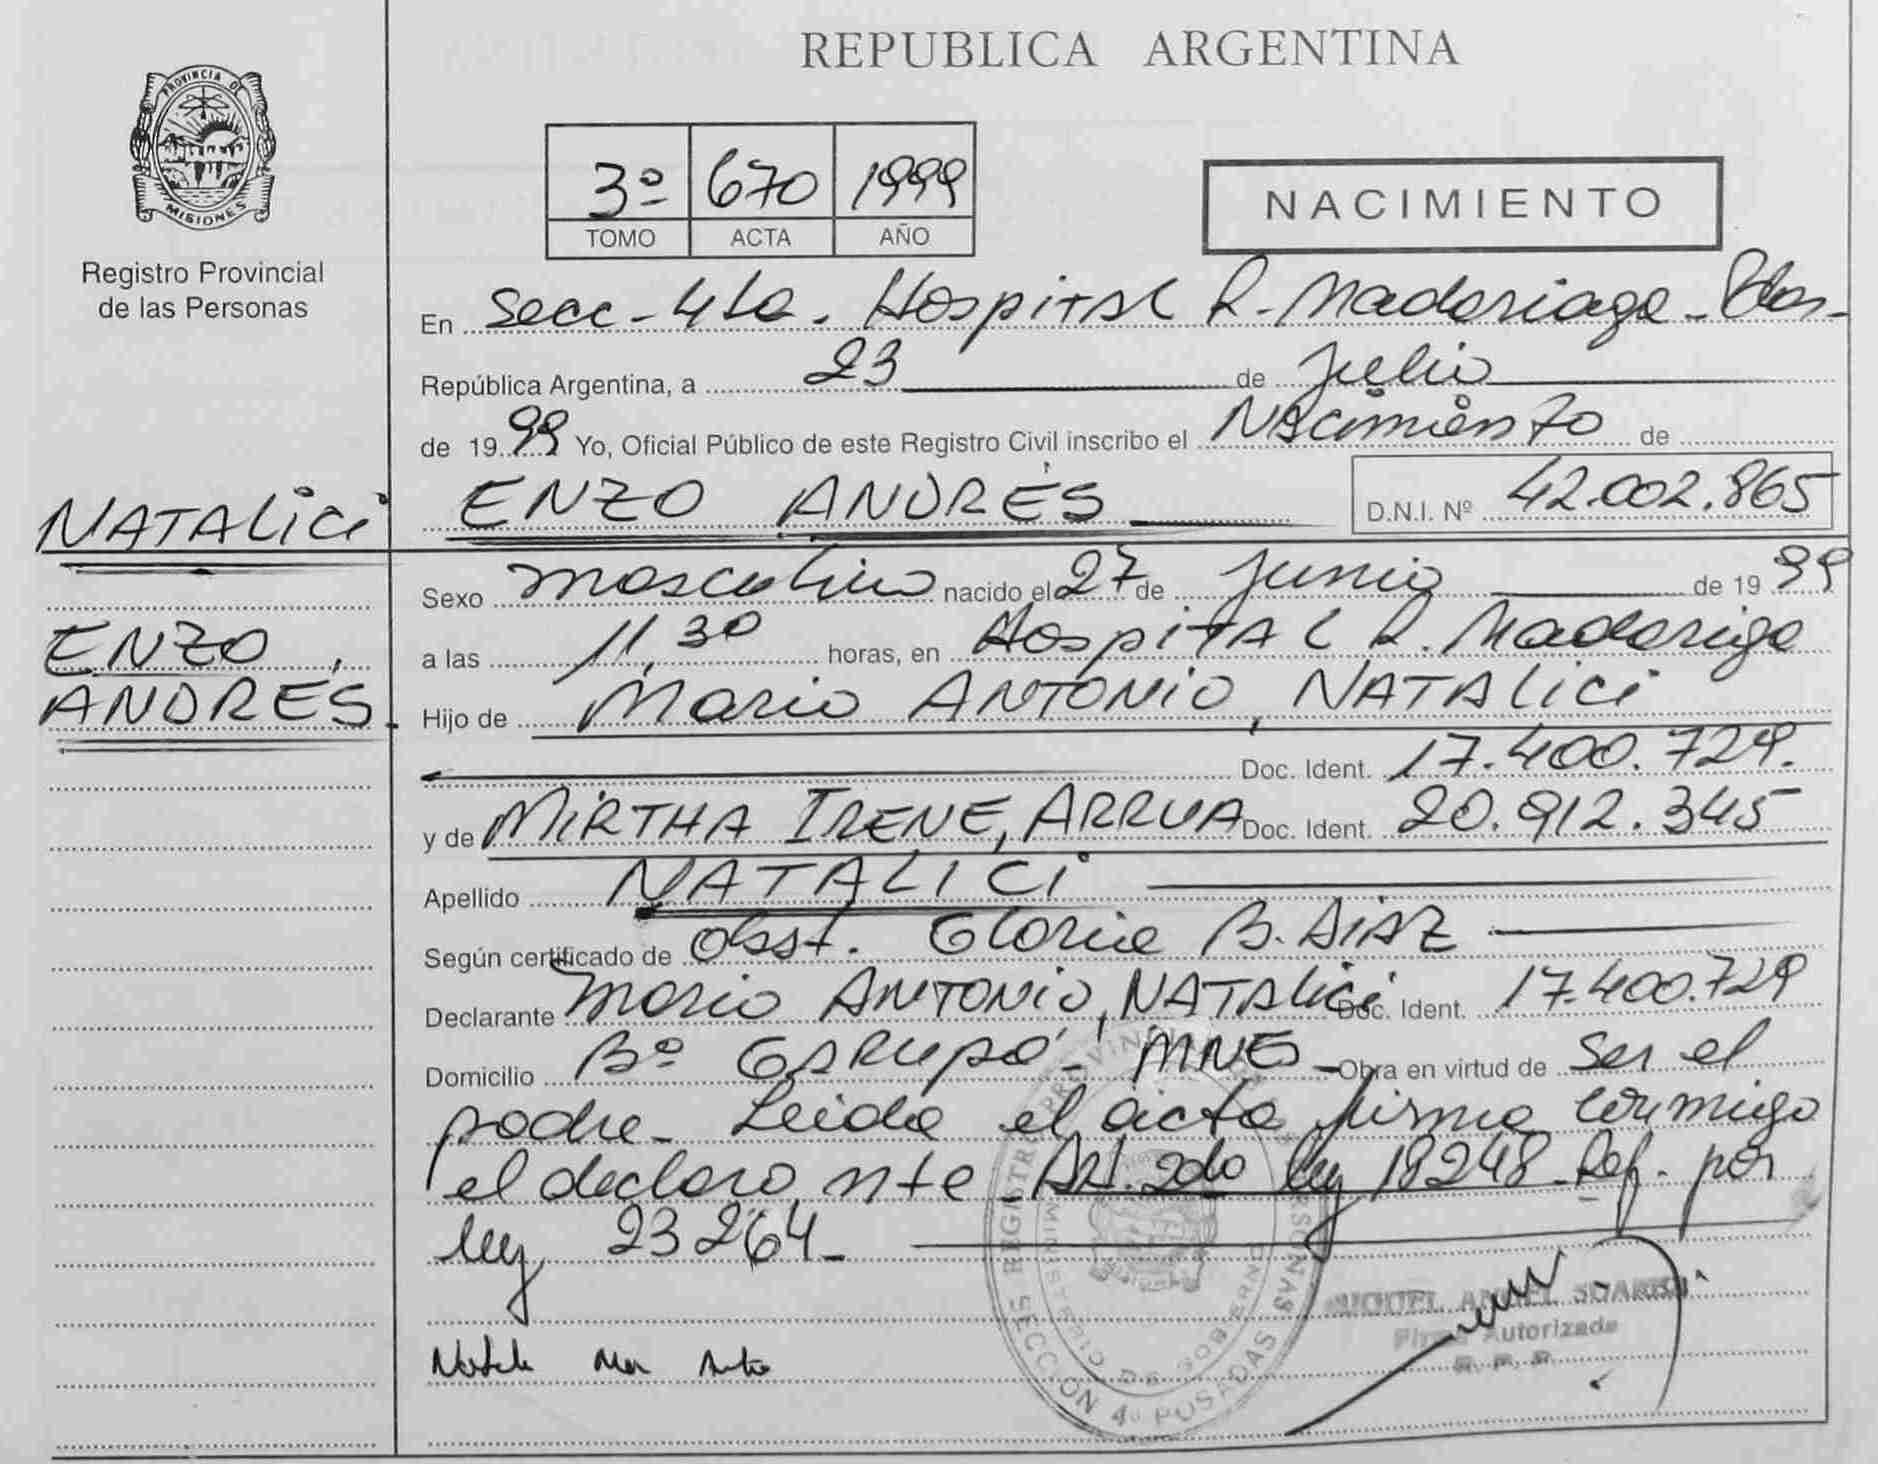 REPUBLICA ARGENTINA
PROVINCIA DE
MISIONES
Registro Provincial
de las Personas
3º 670 1999
TOMO ACTA AÑO
NACIMIENTO
En Secc-4ta. Hospital R. Madariaga - Pdas-
República Argentina, a 23 de Julio
de 1999 Yo, Oficial Público de este Registro Civil inscribo el Nacimiento de
NATALICI
ENZO ANDRÉS D.N.I. Nº 42.002.865
ENZO,
ANDRES.
Sexo masculino nacido el 27 de Junio de 1999
a las 11,30 horas, en Hospital R. Madariaga
Hijo de Mario ANTONIO, NATALICI
Doc. Ident. 17.400.729.
y de MIRTHA IRENE, ARRUA Doc. Ident. 20.912.345
Apellido NATALICI
Según certificado de Obst. Gloria B. DIAZ
Declarante Mario ANTONIO, NATALICI Doc. Ident. 17.400.729
Domicilio Bº Garupá - MNES - Obra en virtud de Ser el
padre - Leida el acta firma conmigo
el declarante - Art. 2do ley 18248 - Ref. por
ley 23264 -
REGISTRO PROVINCIAL DE LAS PERSONAS
MINISTERIO DE GOBIERNO
SECCIÓN 4º POSADAS
MIGUEL ANGEL SUAREZ
Firma Autorizada
R. P. P.